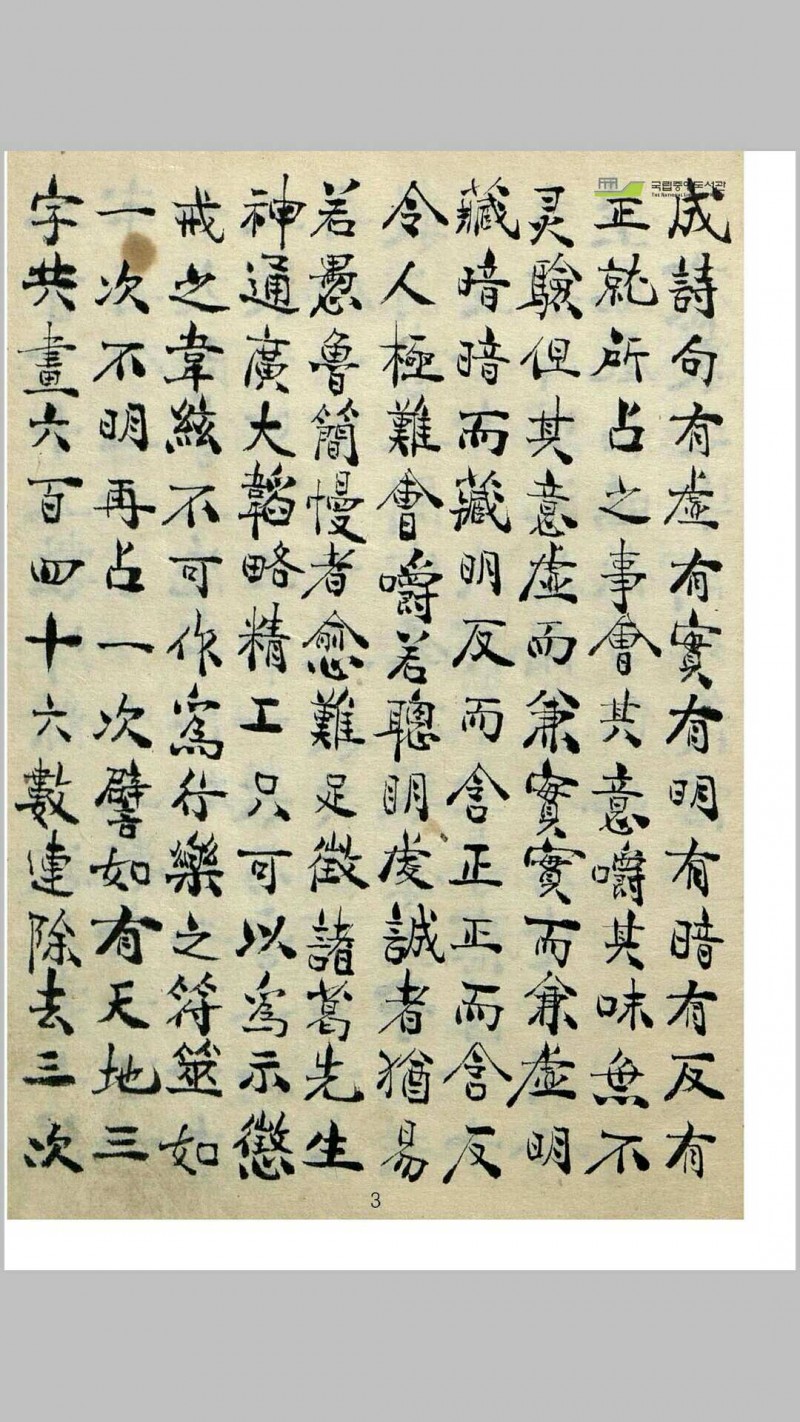 국립중앙도서관
成詩句有虛有實有明有暗有反有
正就所占之事會其意嚼其味無不
灵驗但其意虛而兼實實而兼虛明
藏暗暗而藏明反而含正正而含反
令人極難會嚼若聰明虔誠者猶易
若愚魯簡慢者愈難足徵諸葛先生
神通廣大韜略精工只可以為示懲
戒之韋絃不可作為行樂之符筮如
一次不明再占一次譬如有天地三
字共畫六百四十六數連除去三次
3